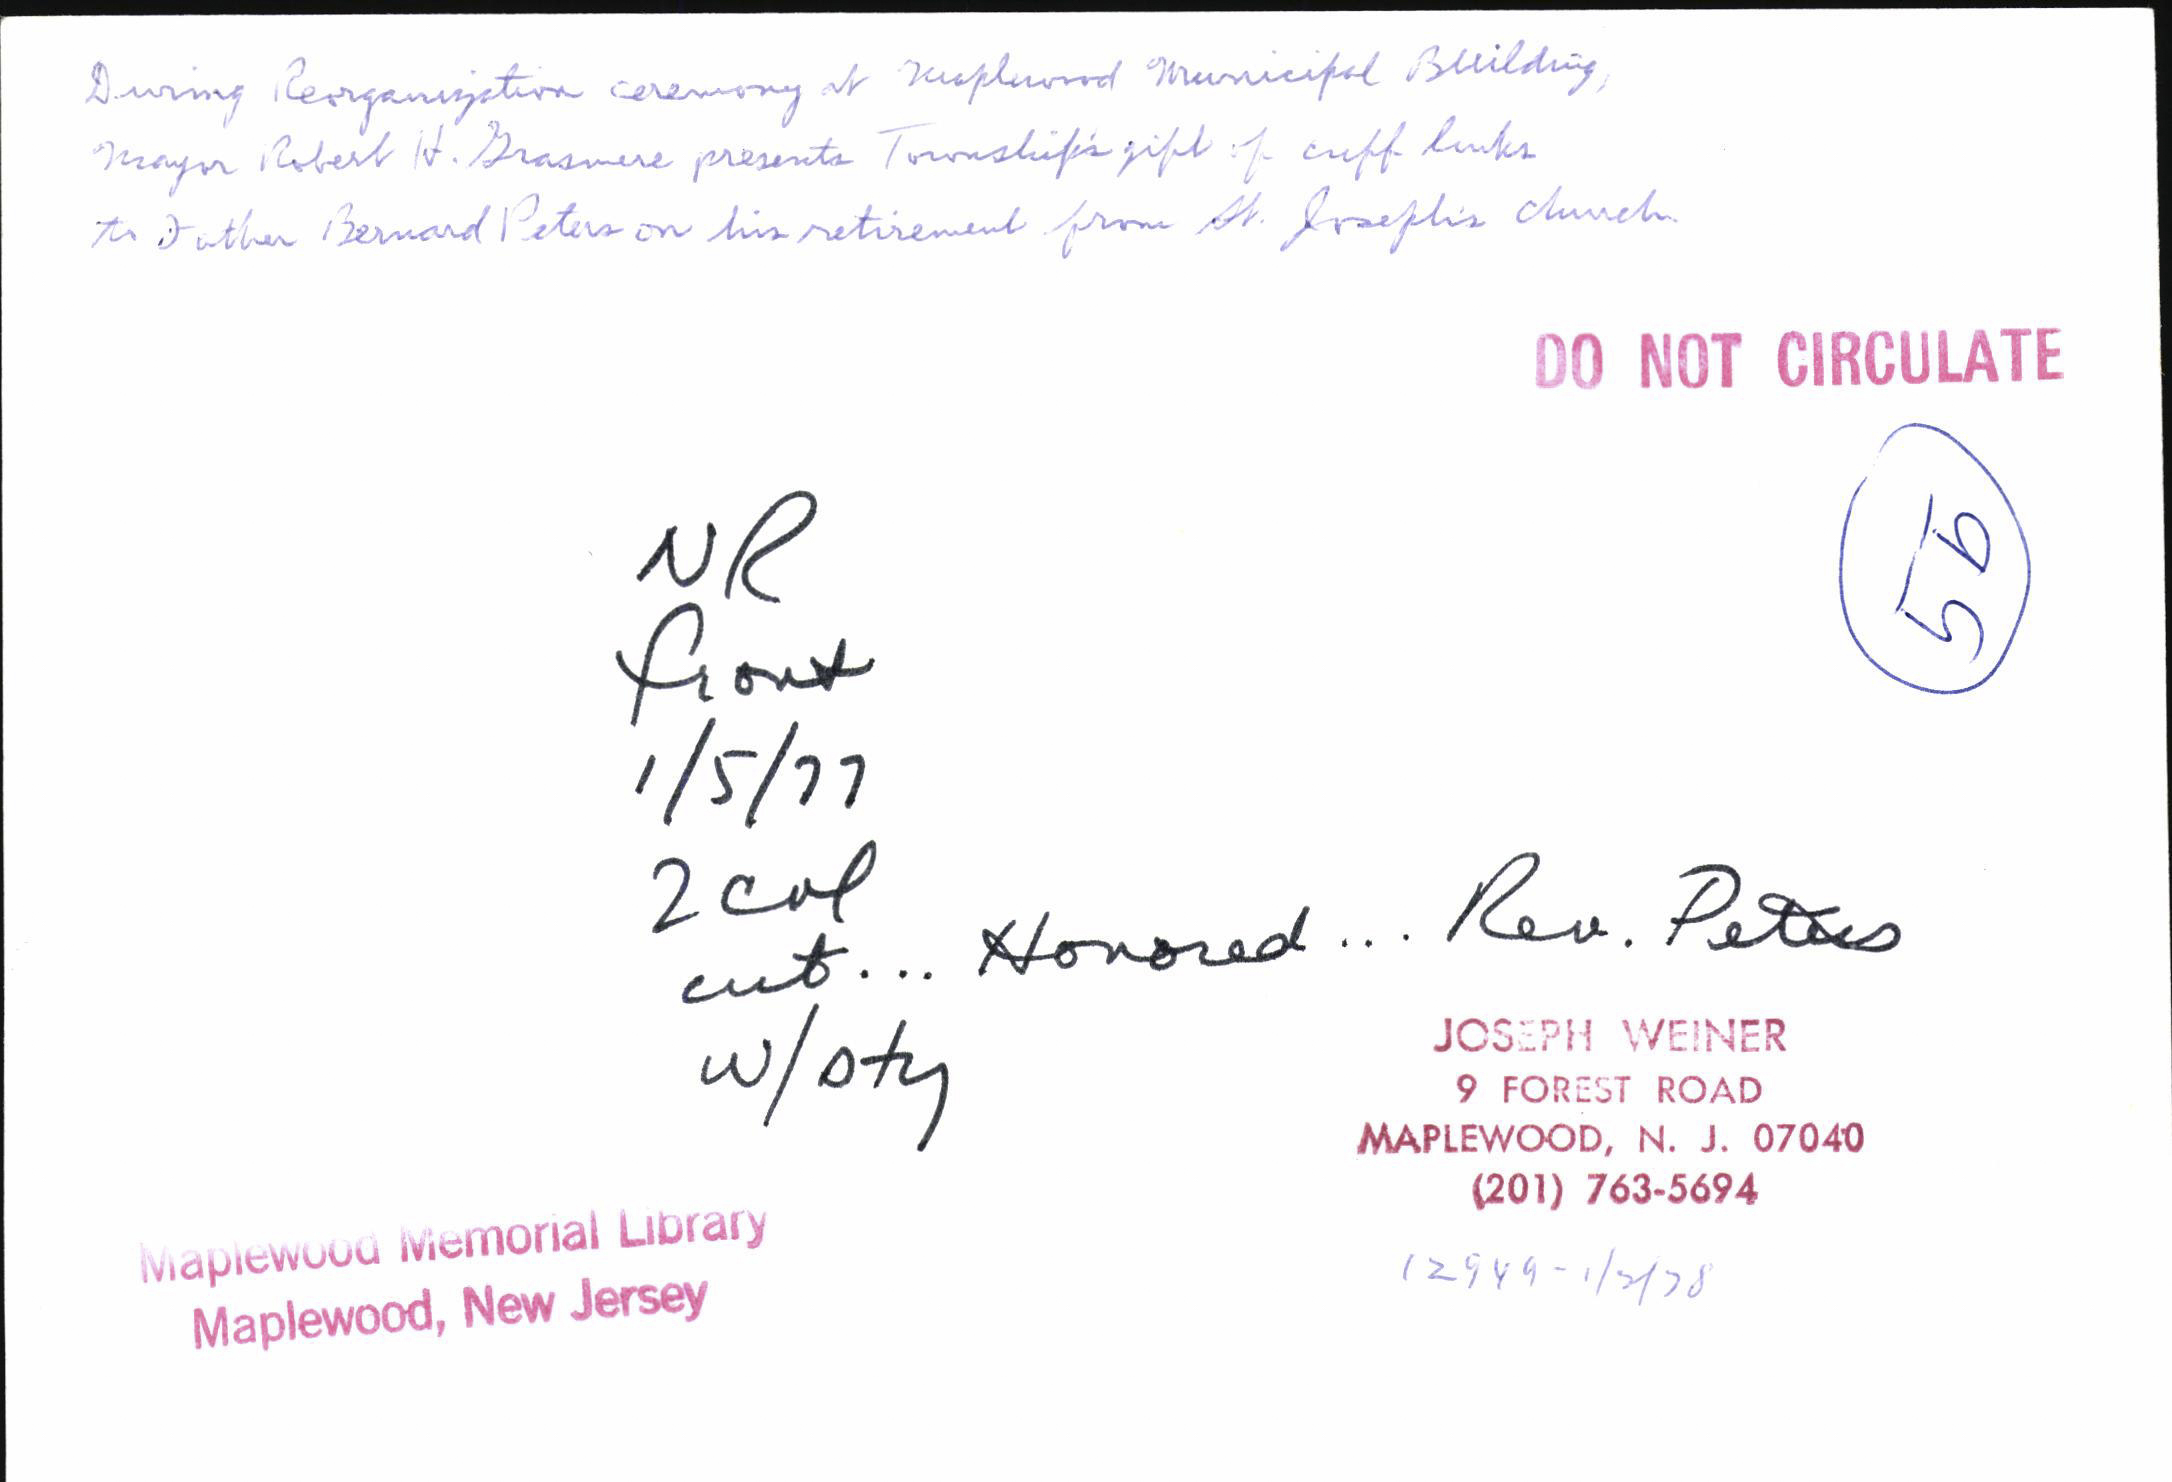 During Reorganization ceremony at Maplewood Municipal Building,
Mayor Robert H. Grasmere presents Township's gift of cuff links
to Father Bernard Peters on his retirement from St. Joseph's church.
DO NOT CIRCULATE
56
NR
front
1/5/77
2 col
cut... Honored... Rev. Peters
w/sty
JOSEPH WEINER
9 FOREST ROAD
MAPLEWOOD, N. J. 07040
(201) 763-5694
12949-1/2/78
Maplewood Memorial Library
Maplewood, New Jersey